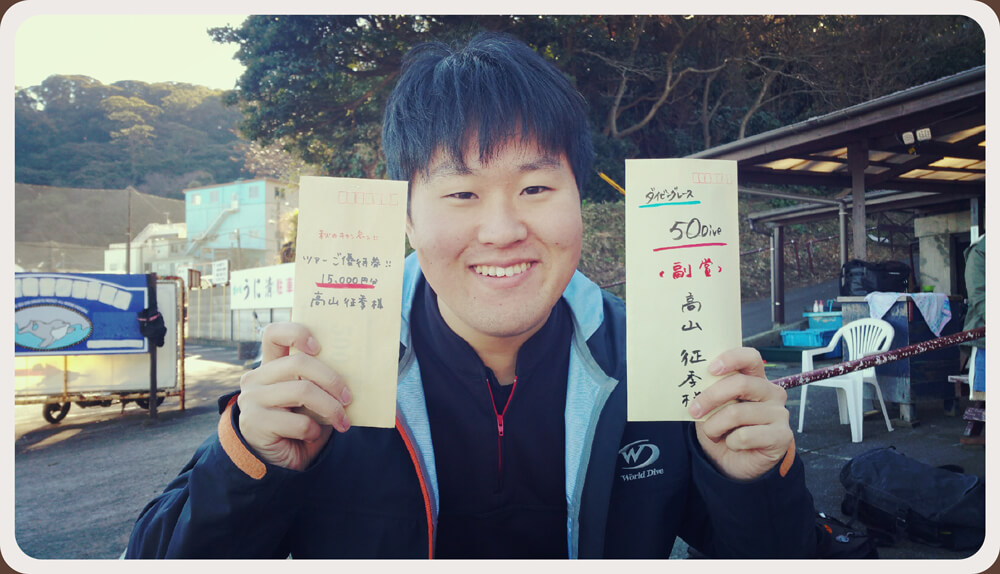 ツアーご優待券!!
15,000円分
高山征季様
ダイビングレース
50Dive
(副賞)
高山 征季様
うに清
World Dive